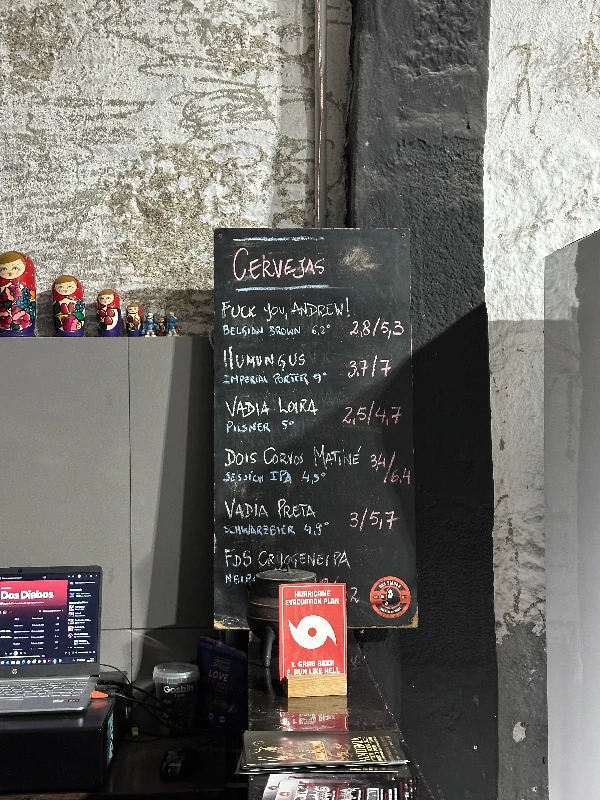 CERVEJAS
FUCK YOU, ANDREW!
BELGIAN BROWN 6,2° 2,8/5,3
HUMUNGUS
IMPERIAL PORTER 9° 3,7/7
VADIA LOIRA
PILSNER 5° 2,5/4,7
DOIS CORVOS MATINÉ 3,4/6,4
SESSION IPA 4,5°
VADIA PRETA
SCHWARZBIER 4,9° 3/5,7
FDS CRYOGENEIPA
2
HURRICANE
EVACUATION PLAN
1. GRAB BEER
2. RUN LIKE HELL
Dos Diabos
LOVE